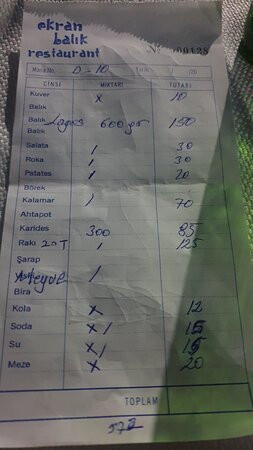 ekran
balık
restaurant
No 000128
Masa No. D-10 Tarih / /20
CİNSİ MİKTARI TUTARI
Kuver x 10
Balık
Balık Lagos 600 gr 150
Balık
Salata / 30
Roka / 30
Patates / 20
Börek
Kalamar / 70
Ahtapot
Karides 300 85
Rakı 20T / 125
Şarap
Meyve /
Bira
Kola x 12
Soda x/ 15
Su x/ 15
Meze x 20
TOPLAM
572